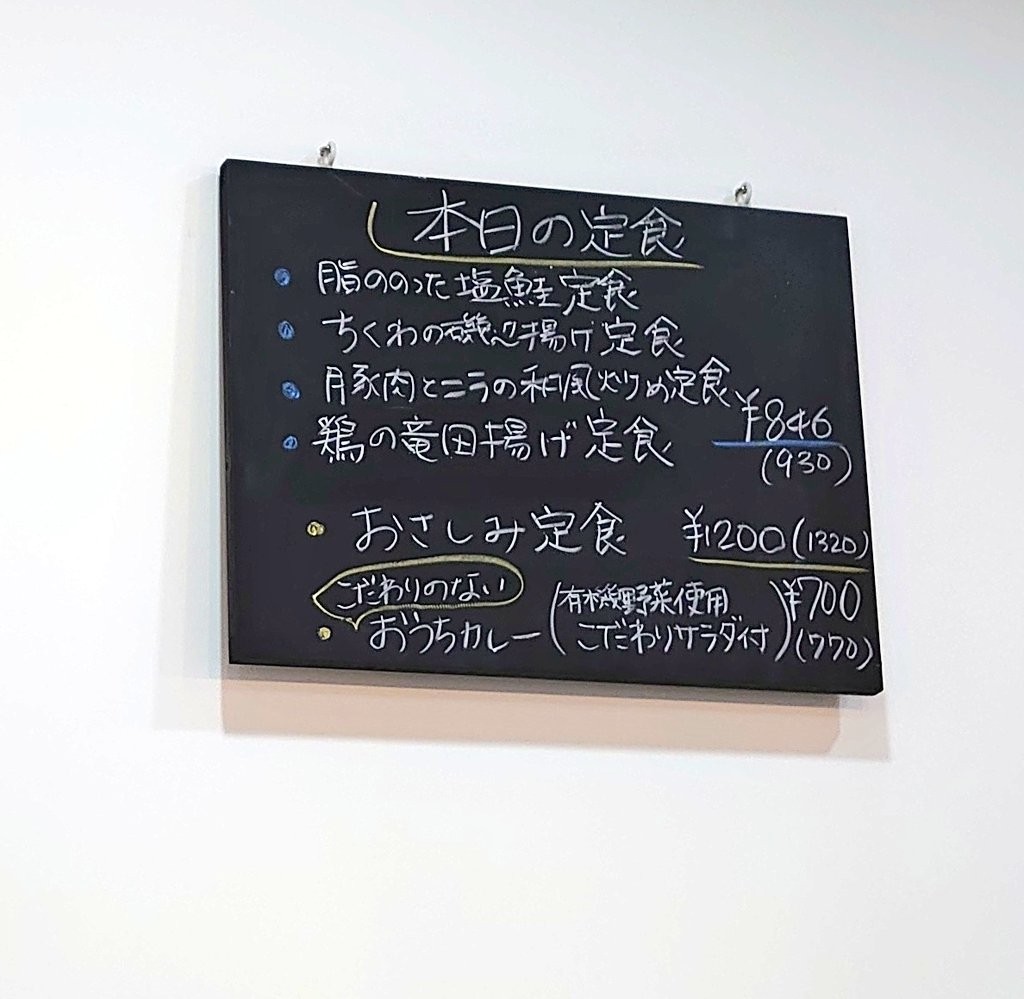 本日の定食
脂ののった塩鮭定食
ちくわの磯辺揚げ定食
豚肉とニラの和風炒め定食
¥846
鶏の竜田揚げ定食
(930)
おさしみ定食 ¥1200(1320)
こだわりのない
おうちカレー(有機野菜使用
こだわりサラダ付) ¥700
(770)